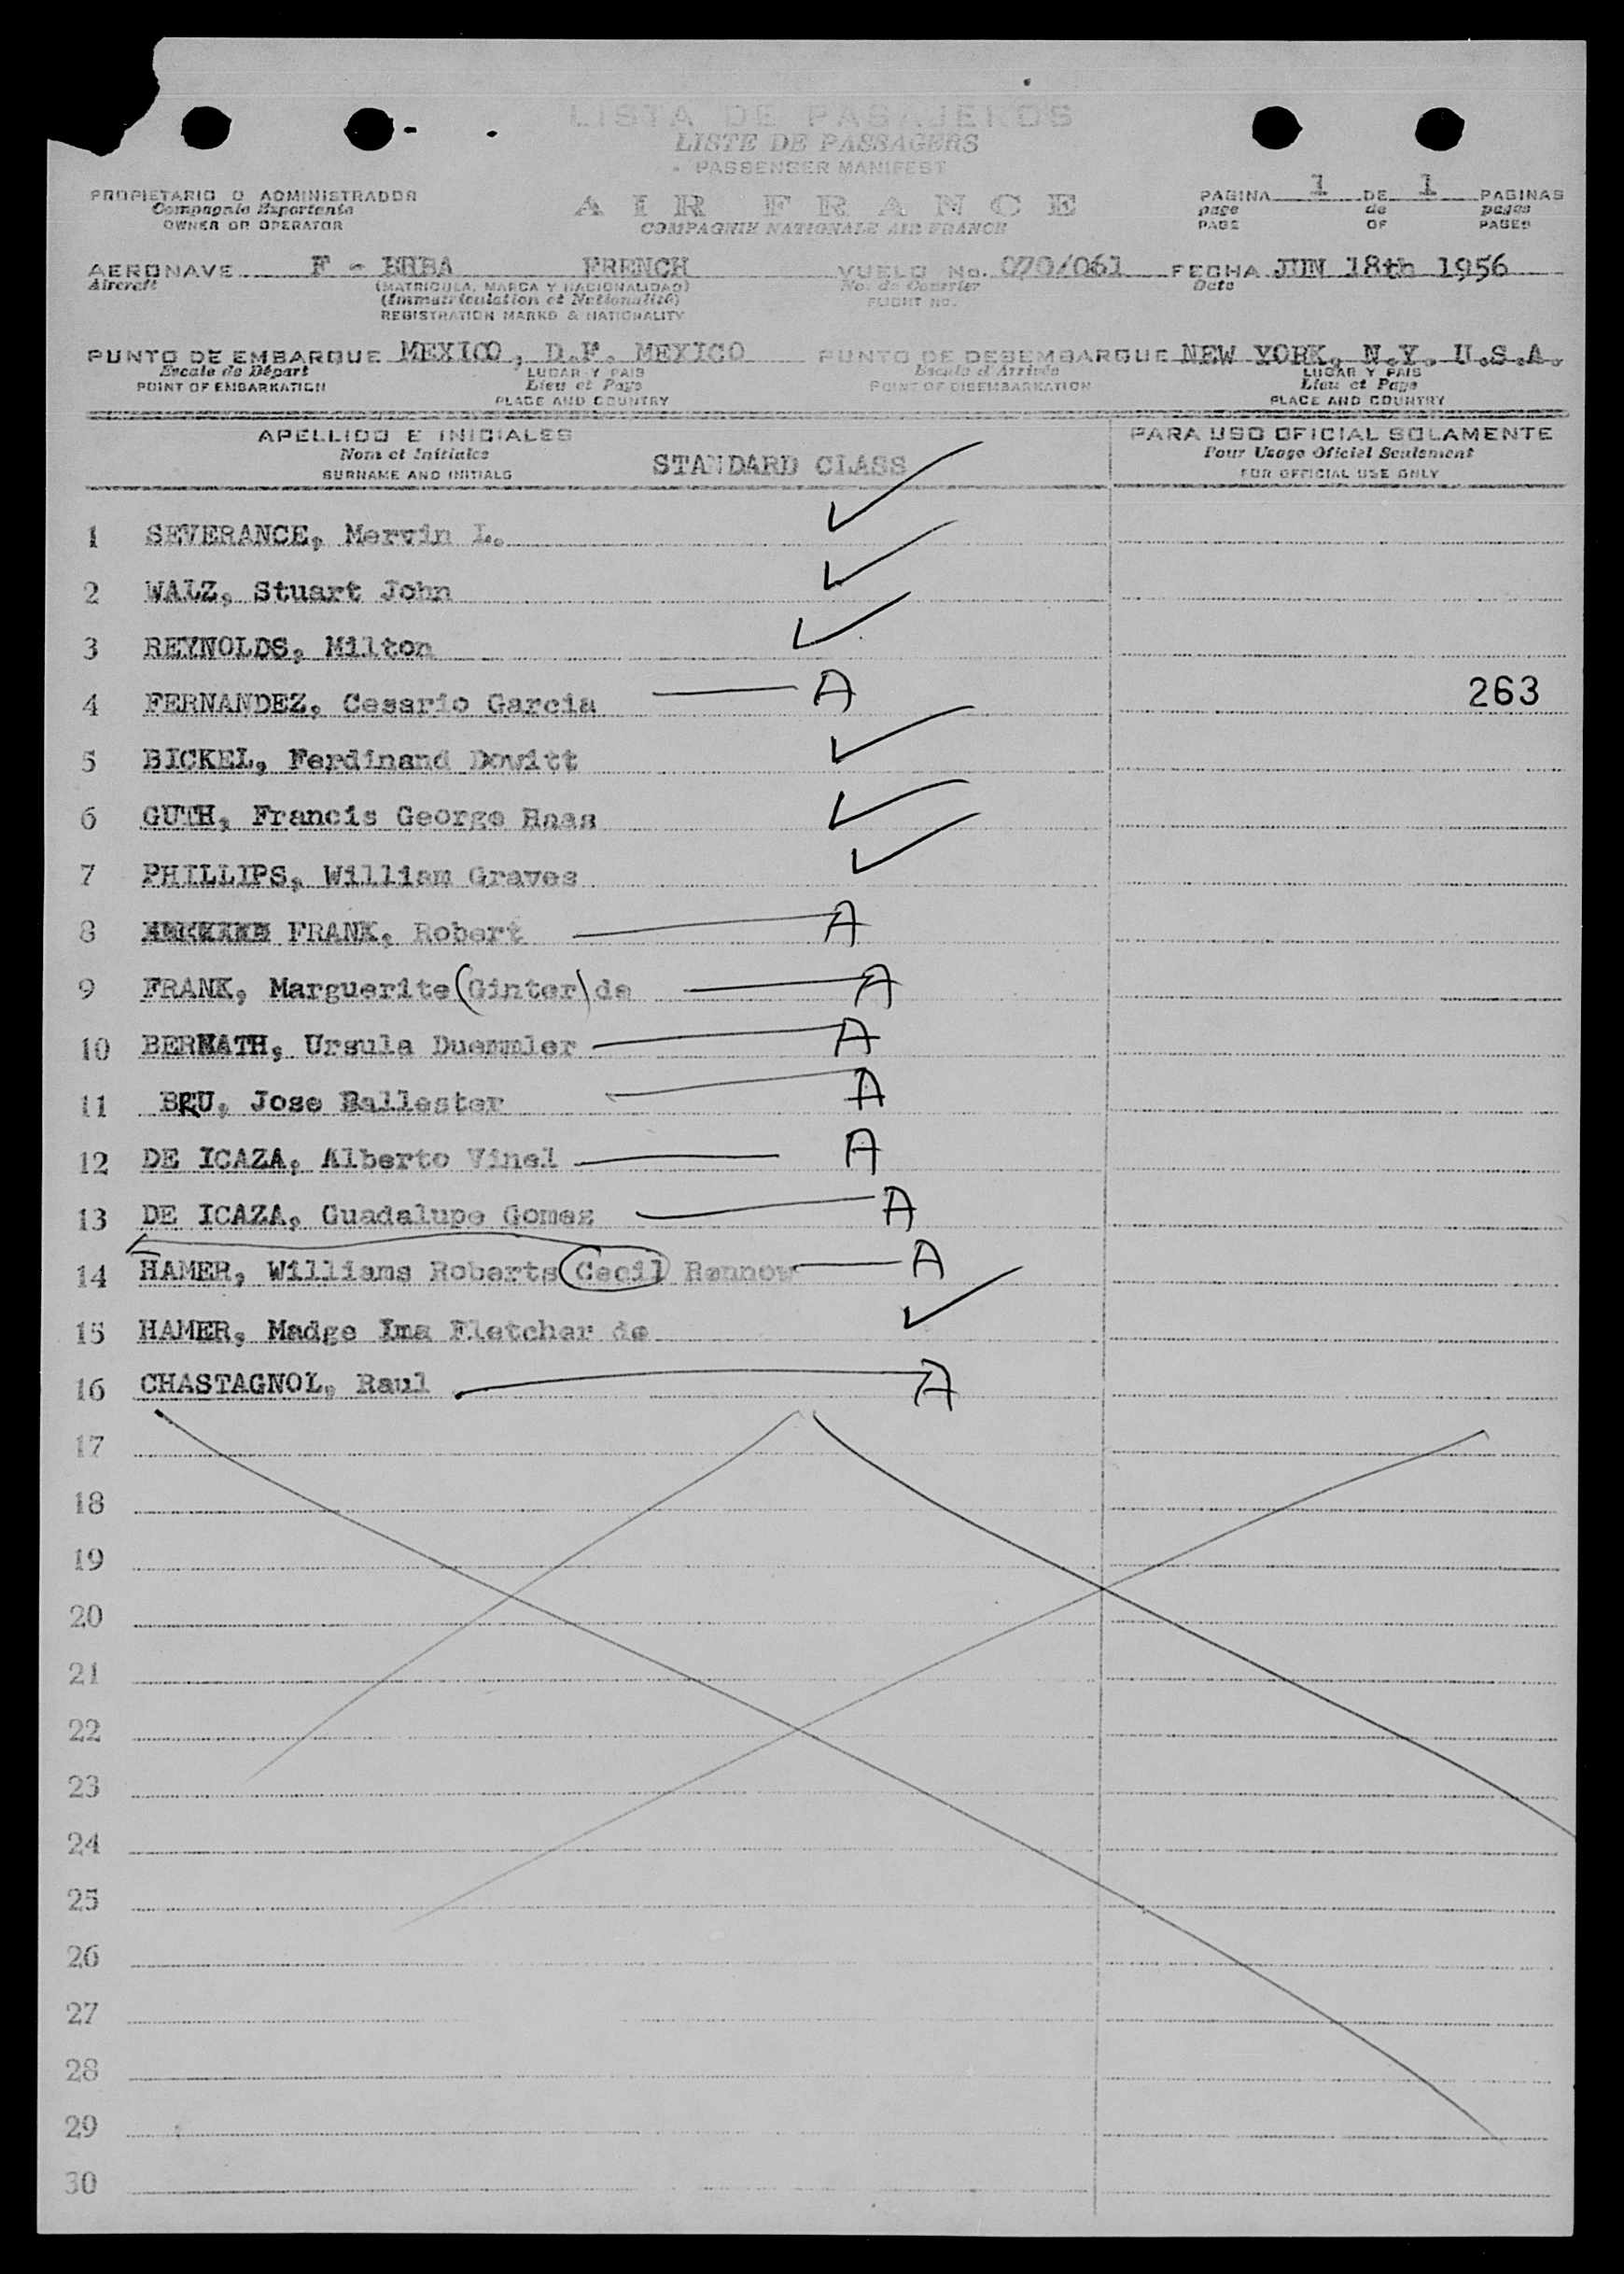 LISTA DE PASAJEROS
LISTE DE PASSAGERS
PASSENGER MANIFEST
PROPIETARIO O ADMINISTRADOR
OWNER OR OPERATOR
AIR FRANCE
COMPAGNIE NATIONALE AIR FRANCE
PAGINA 1 DE 1 PAGINAS
page de pages
PAGE OF PAGES
AERONAVE F - FRENCH VUELO No. 070/061 FECHA JUN 18th 1956
Aircraft (MATRICULA, MARCA Y NACIONALIDAD) No. de Courrier Date
(Immatriculation et Nationalité) FLIGHT NO.
REGISTRATION MARKS & NATIONALITY
PUNTO DE EMBARQUE MEXICO, D.F. MEXICO PUNTO DE DESEMBARQUE NEW YORK, N.Y. U.S.A.
Escale de Départ LUGAR Y PAIS Escale d'Arrivée LUGAR Y PAIS
POINT OF EMBARKATION Lieu et Pays POINT OF DISEMBARKATION Lieu et Pays
PLACE AND COUNTRY PLACE AND COUNTRY
APELLIDO E INICIALES PARA USO OFICIAL SOLAMENTE
Nom et Initiales STANDARD CLASS Pour Usage Oficiel Seulement
SURNAME AND INITIALS FOR OFFICIAL USE ONLY
1 SEVERANCE, Mervin L. ✓
2 WALZ, Stuart John ✓
3 REYNOLDS, Milton ✓
4 FERNANDEZ, Cesario Garcia — A 263
5 BICKEL, Ferdinand Dowitt ✓
6 GUTH, Francis George Haas ✓
7 PHILLIPS, William Graves ✓
8 FRANK, Robert — A
9 FRANK, Marguerite (Ginter) de — A
10 BERNATH, Ursula Duemmler — A
11 BRU, Jose Ballester — A
12 DE ICAZA, Alberto Vinel — A
13 DE ICAZA, Guadalupe Gomez — A
14 HAMER, Williams Roberts Cecil Rennow — A
15 HAMER, Madge Ima Fletcher de ✓
16 CHASTAGNOL, Raul — A
17
18
19
20
21
22
23
24
25
26
27
28
29
30